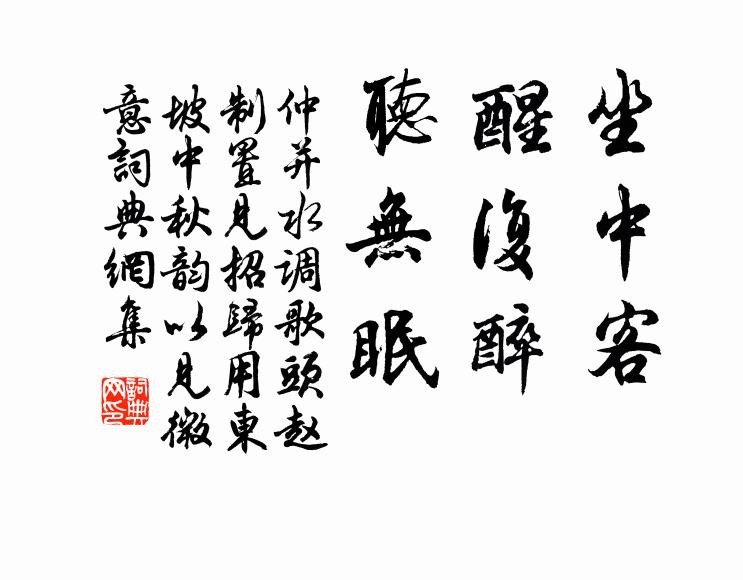 坐中客
醒復醉
聽無眠
仲并水调歌頭赵
制置見招歸用東
坡中秋韵以見微
意詞典網集
詞典
网印